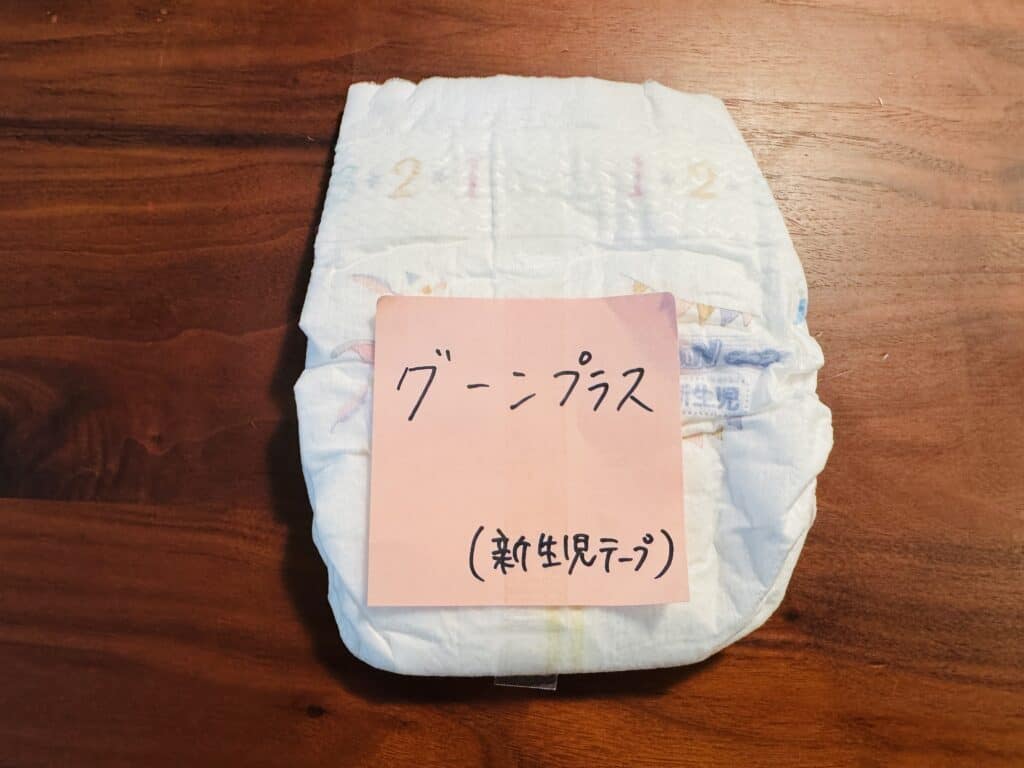 3 2 1 1 2
グーンプラス
新生児
(新生児テープ)